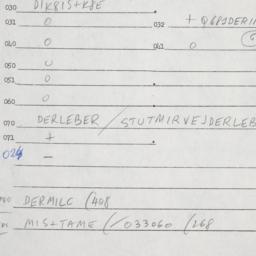 030 DIK8IS+K8E
031 0 032 + Q681DERI
040 0 041 0
050 0
051 0
060 0
070 DERLEBER / STUTMIRVEJDERLEB
071 +
024 -
DERMILC (408
MIS+TAME (/033060 (268